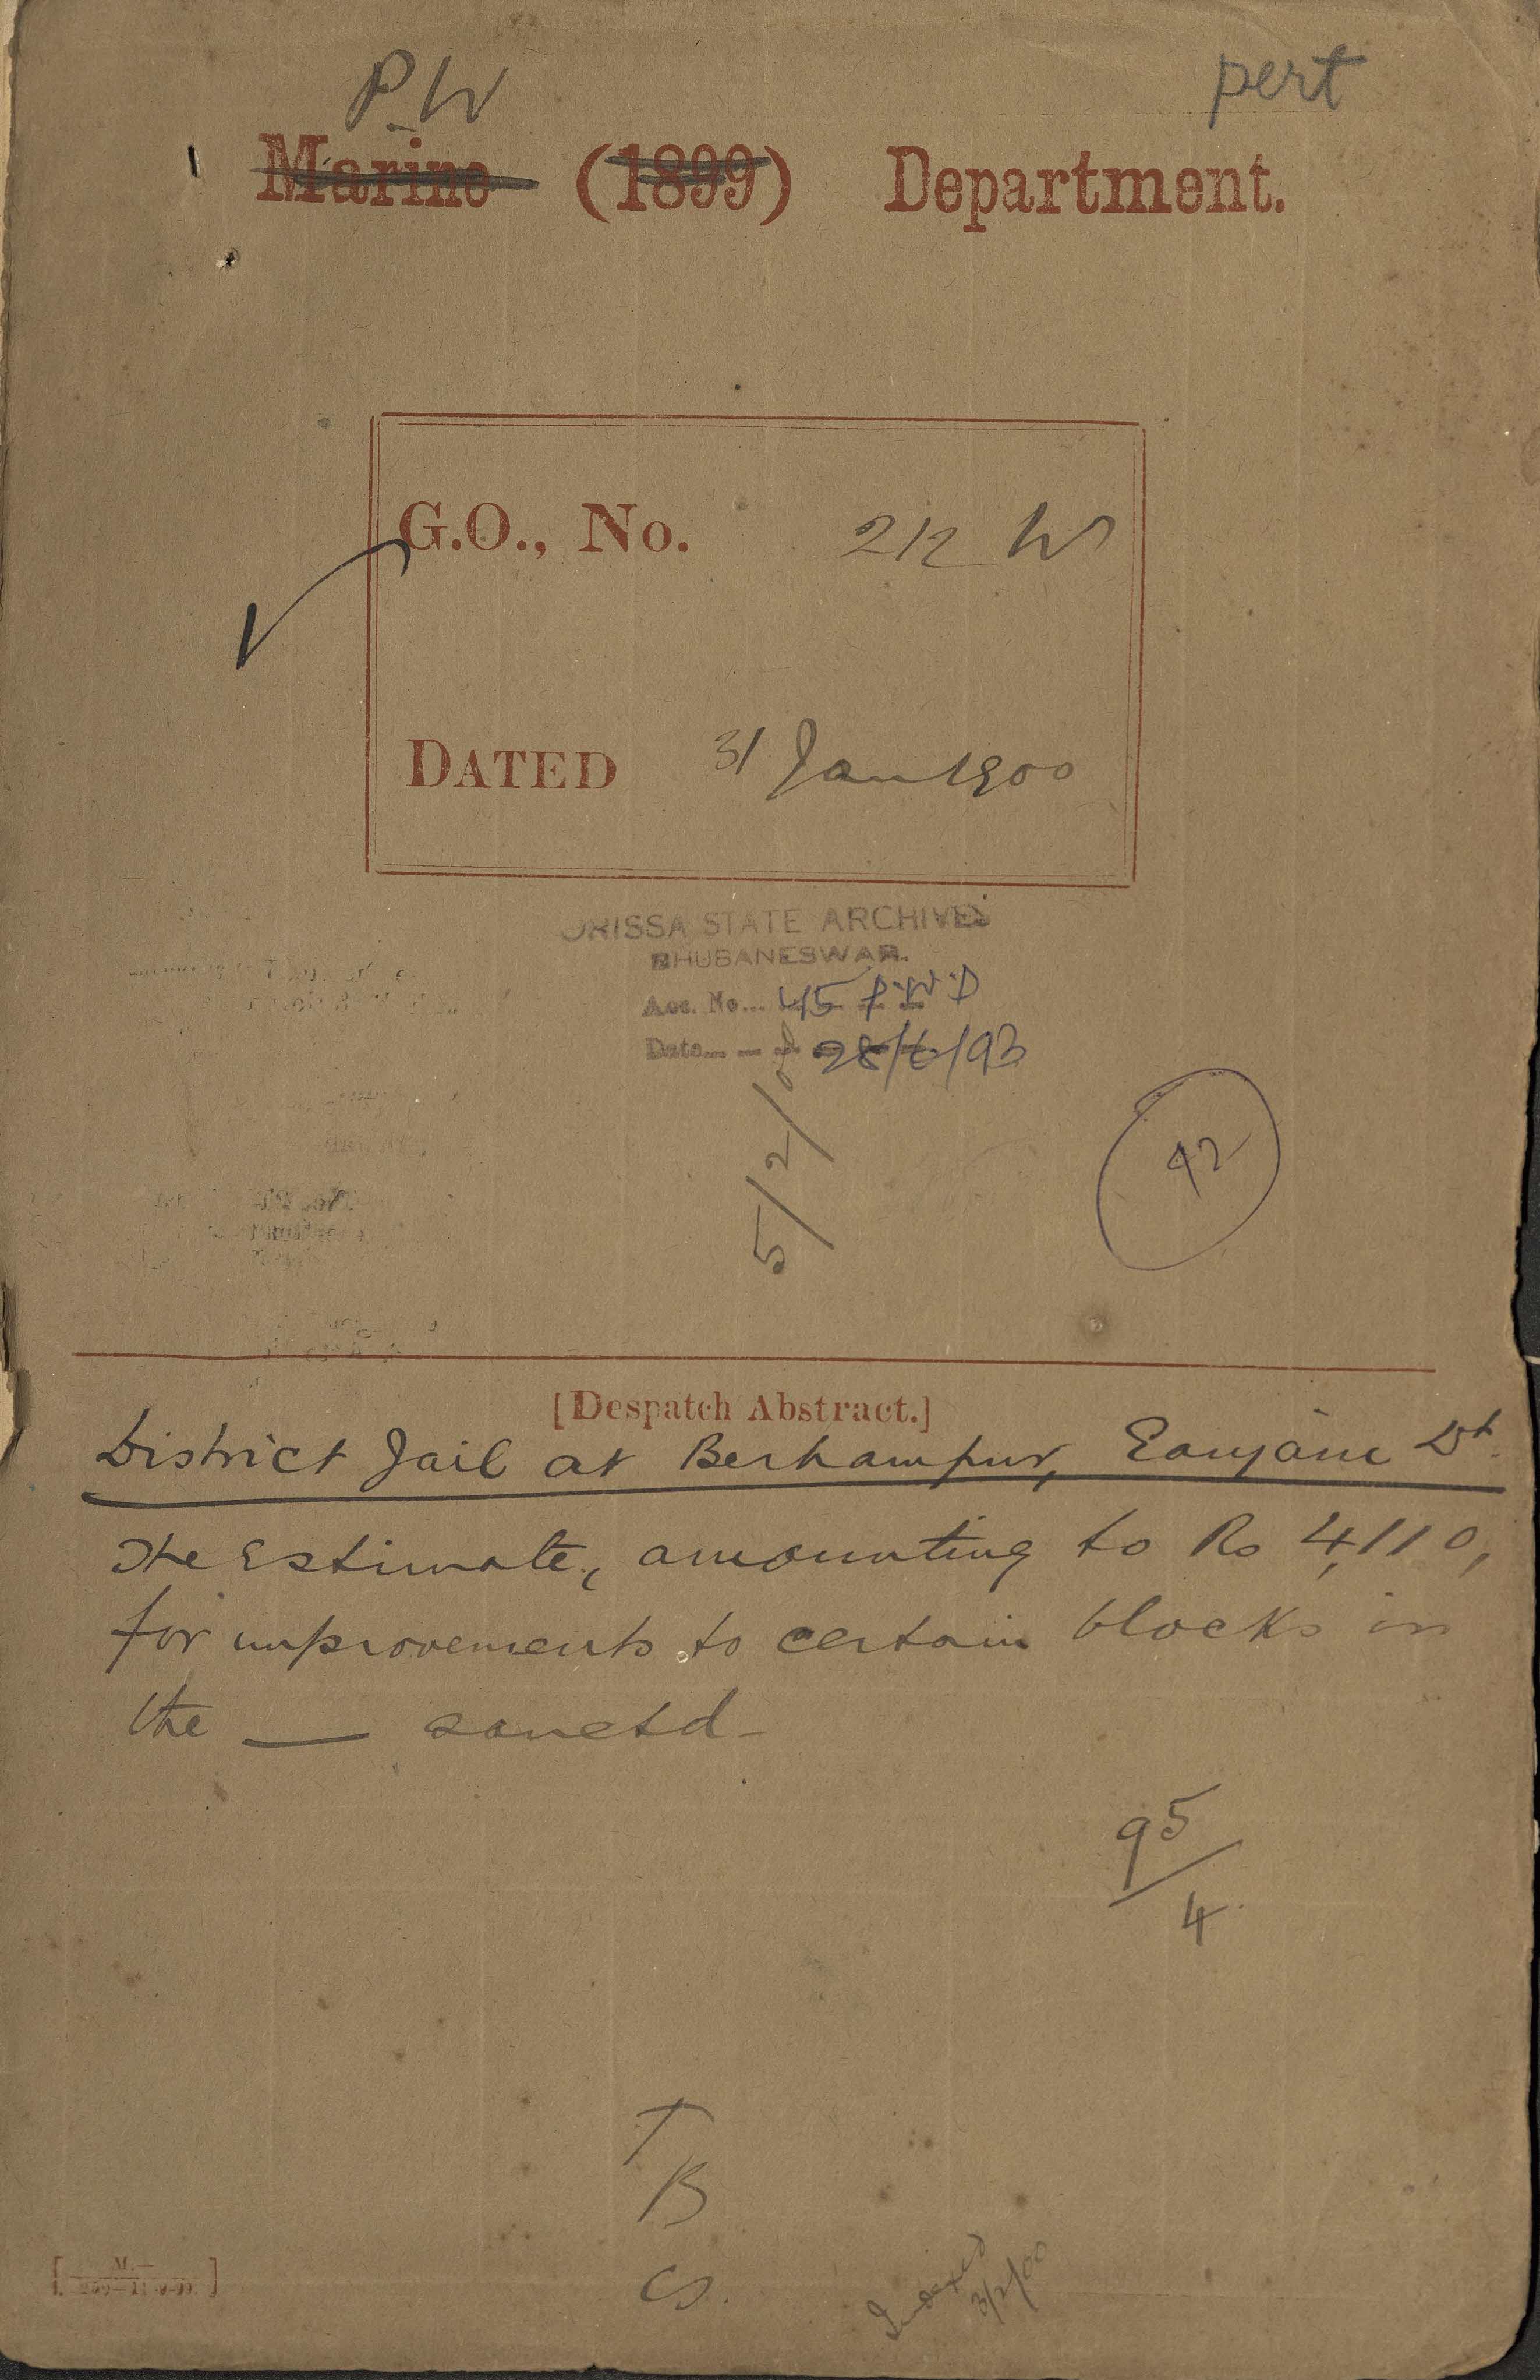 P.W
pert
Marine (1899) Department.
G.O., No. 212 W
DATED 31 Jan 1900
ORISSA STATE ARCHIVES
BHUBANESWAR.
Acc. No... 45 P.W.D
Date 28/6/93
5/2/
42
[Despatch Abstract.]
District Jail at Berhampur, Ganjam Dt.
The Estimate, amounting to Rs 4,110,
for improvements to certain blocks in
the — sanctd-
95/4
T
B
CS.
Indexed
3/2/00